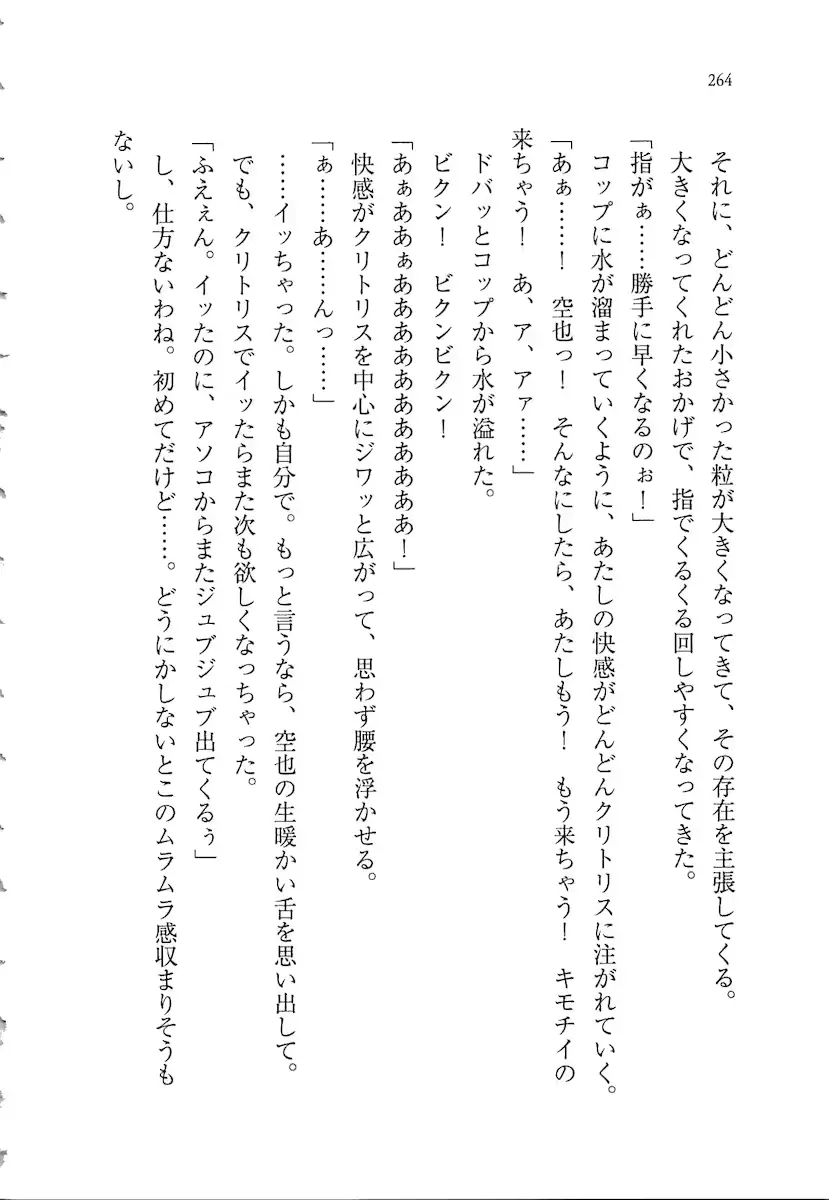 264
それに、どんどん小さかった粒が大きくなってきて、その存在を主張してくる。
大きくなってくれたおかげで、指でくるくる回しやすくなってきた。
「指がぁ……勝手に早くなるのぉ！」
コップに水が溜まっていくように、あたしの快感がどんどんクリトリスに注がれていく。
「あぁ……！　空也っ！　そんなにしたら、あたしもう！　もう来ちゃう！　キモチイの
来ちゃう！　あ、ア、アァ……」
ドバッとコップから水が溢れた。
ビクン！　ビクンビクン！
「あぁああぁあああああああああああ！」
快感がクリトリスを中心にジワッと広がって、思わず腰を浮かせる。
「ぁ……あ……んっ……」
……イッちゃった。しかも自分で。もっと言うなら、空也の生暖かい舌を思い出して。
でも、クリトリスでイッたらまた次も欲しくなっちゃった。
「ふえぇん。イッたのに、アソコからまたジュブジュブ出てくるぅ」
し、仕方ないわね。初めてだけど……。どうにかしないとこのムラムラ感収まりそうも
ないし。